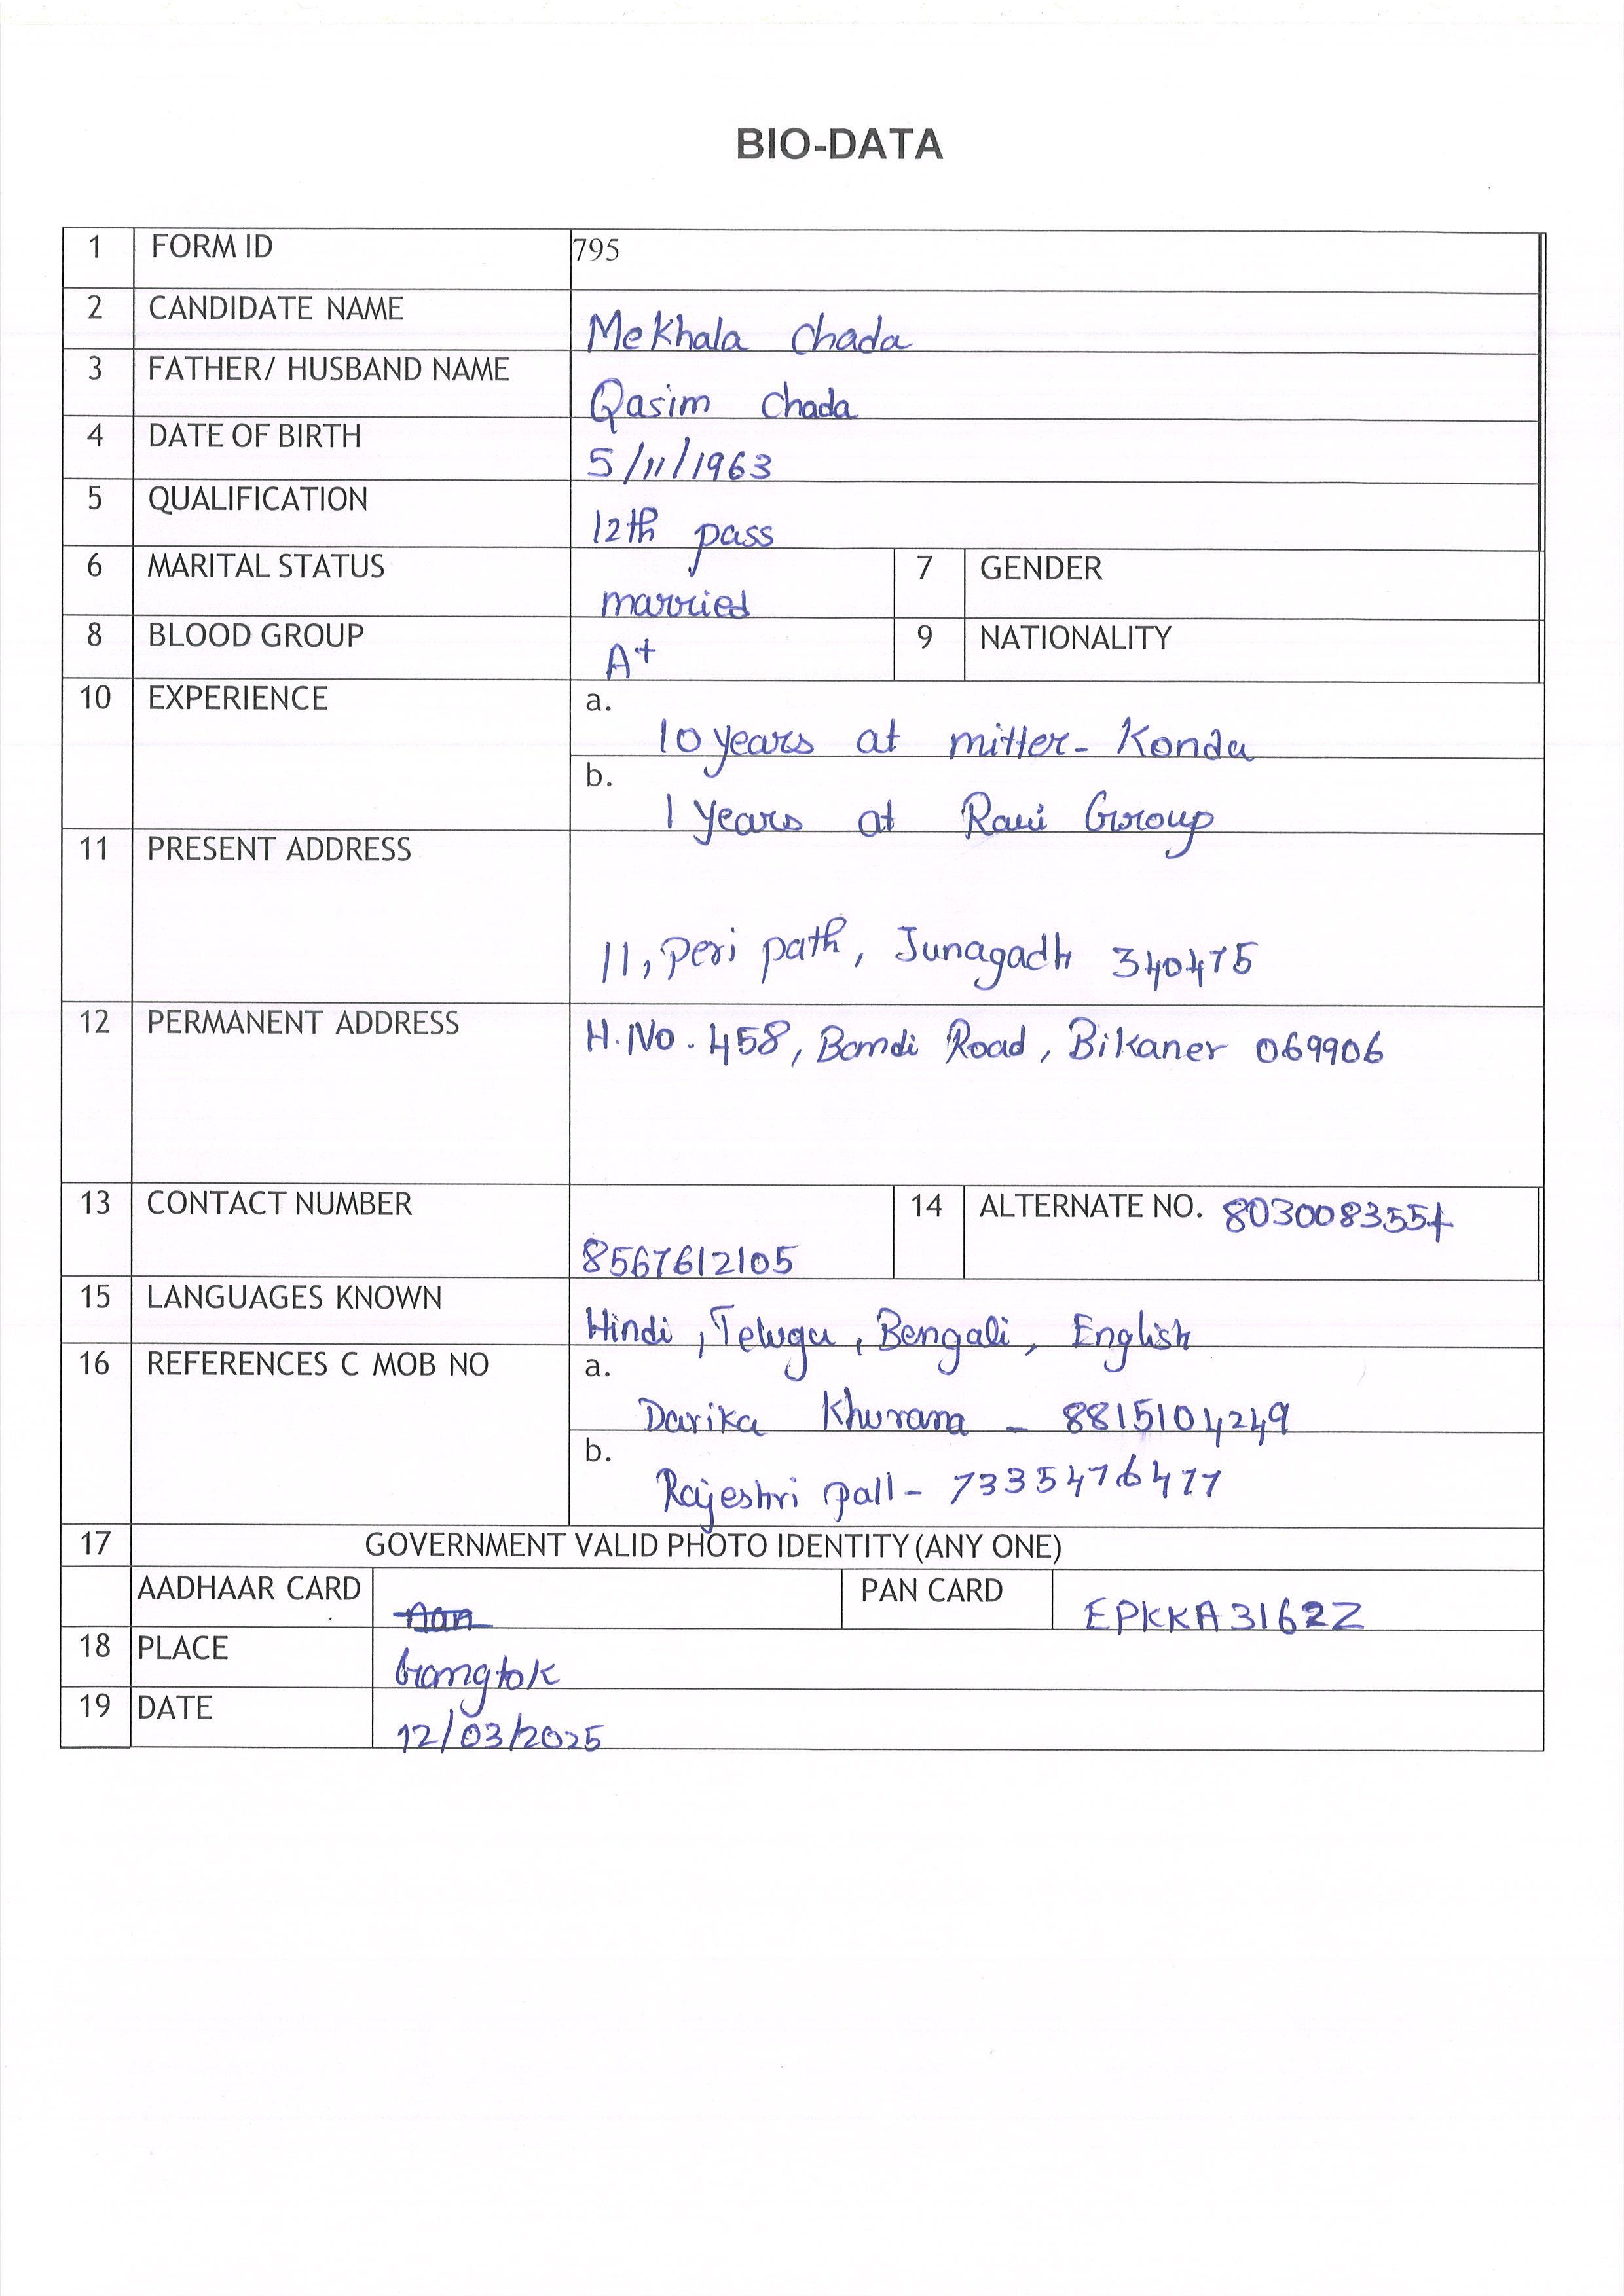 BIO-DATA
1 FORM ID 795
2 CANDIDATE NAME Mekhala Chada
3 FATHER/ HUSBAND NAME Qasim Chada
4 DATE OF BIRTH 5/11/1963
5 QUALIFICATION 12th pass
6 MARITAL STATUS married 7 GENDER
8 BLOOD GROUP A+ 9 NATIONALITY
10 EXPERIENCE a. 10 years at mitter- Konda
b. 1 years at Ravi Group
11 PRESENT ADDRESS 11, Peri path, Junagadh 340475
12 PERMANENT ADDRESS H.No. 458, Bandi Road, Bikaner 069906
13 CONTACT NUMBER 8567612105 14 ALTERNATE NO.
15 LANGUAGES KNOWN Hindi, Telugu, Bengali, English
16 REFERENCES C MOB NO a. Darika Khurana - 8815104249
b. Rajeshri pall - 7335476477
17 GOVERNMENT VALID PHOTO IDENTITY (ANY ONE)
AADHAAR CARD PAN CARD EPKKA3162Z
18 PLACE Gangtok
19 DATE 12/03/2025